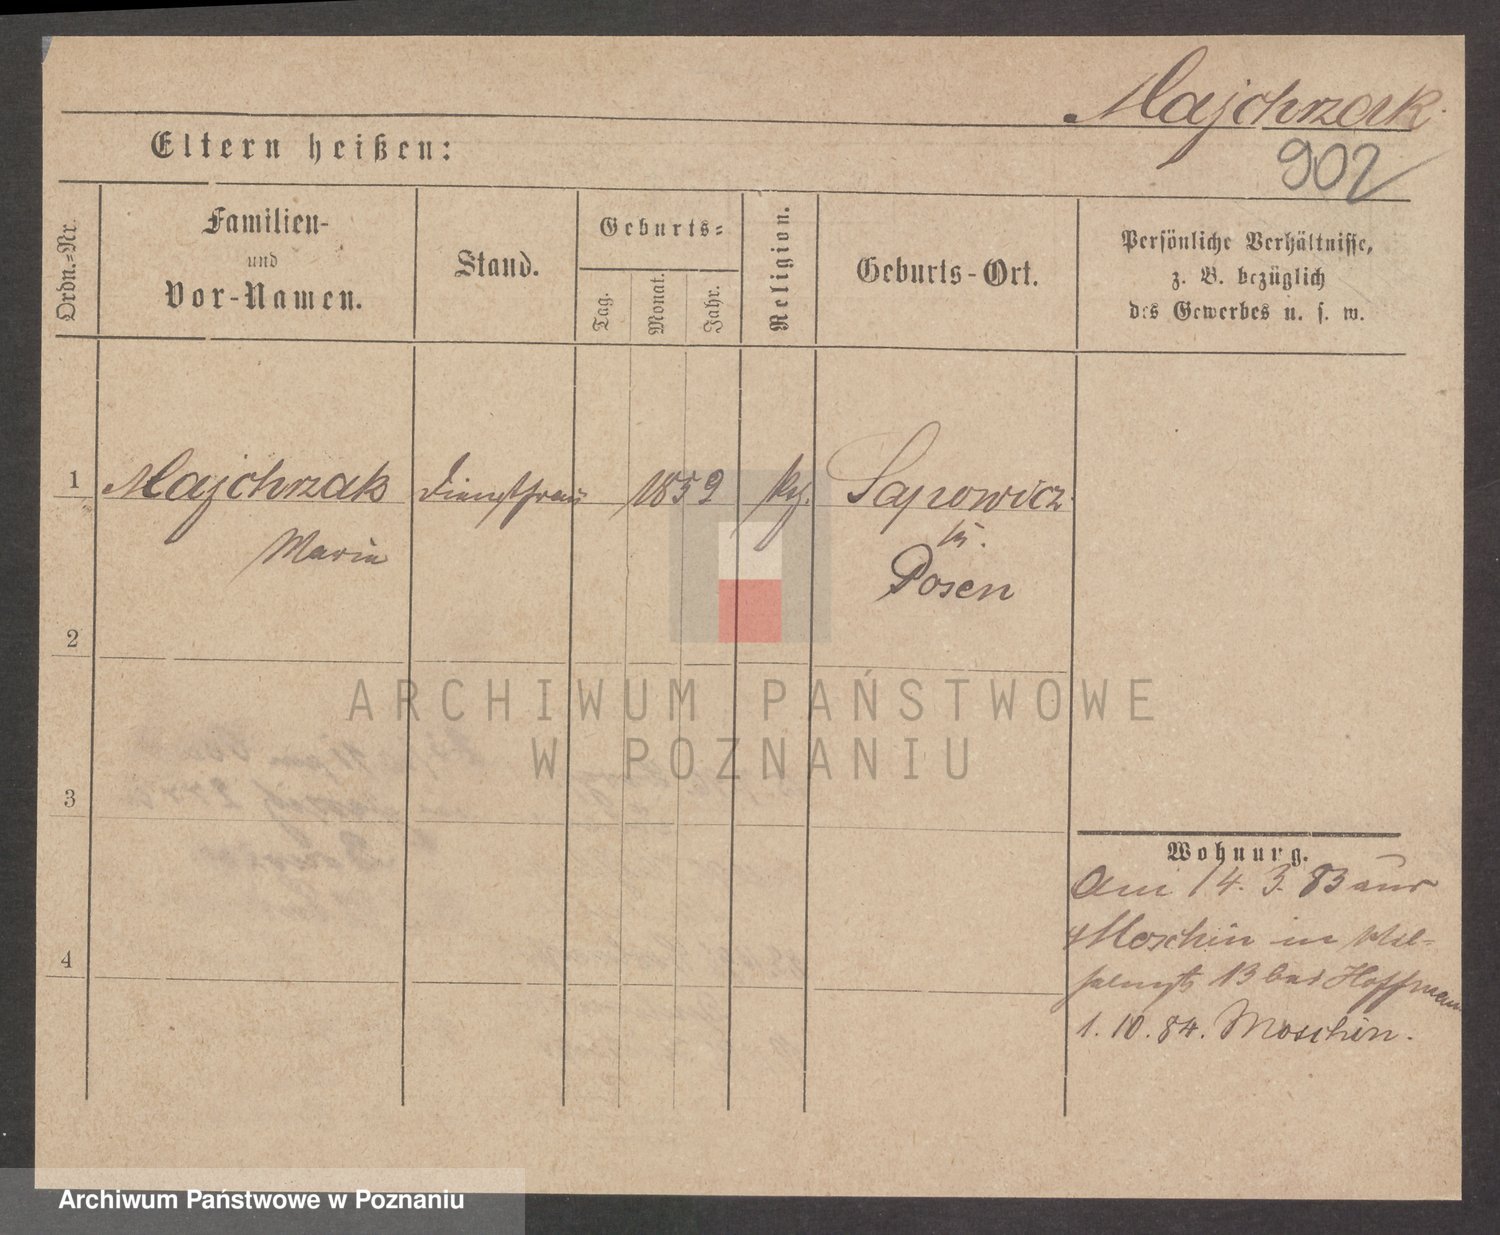 Majchrzak.
Eltern heißen:
902
Ordn.=Nr.
Familien-
und
Vor-Namen.
Stand.
Geburts=
Tag.
Monat.
Jahr.
Religion.
Geburts-Ort.
Persönliche Verhältnisse,
z. B. bezüglich
des Gewerbes u. s. w.
1 Majchrzak 1859 Sapowicz
Maria
in
Posen
2
3
4
Wohnung.
Am 14. 3. 83 aus
Moschin in
13 bei Hoffmann
1. 10. 84. Moschin.
ARCHIWUM PAŃSTWOWE
W POZNANIU
Archiwum Państwowe w Poznaniu